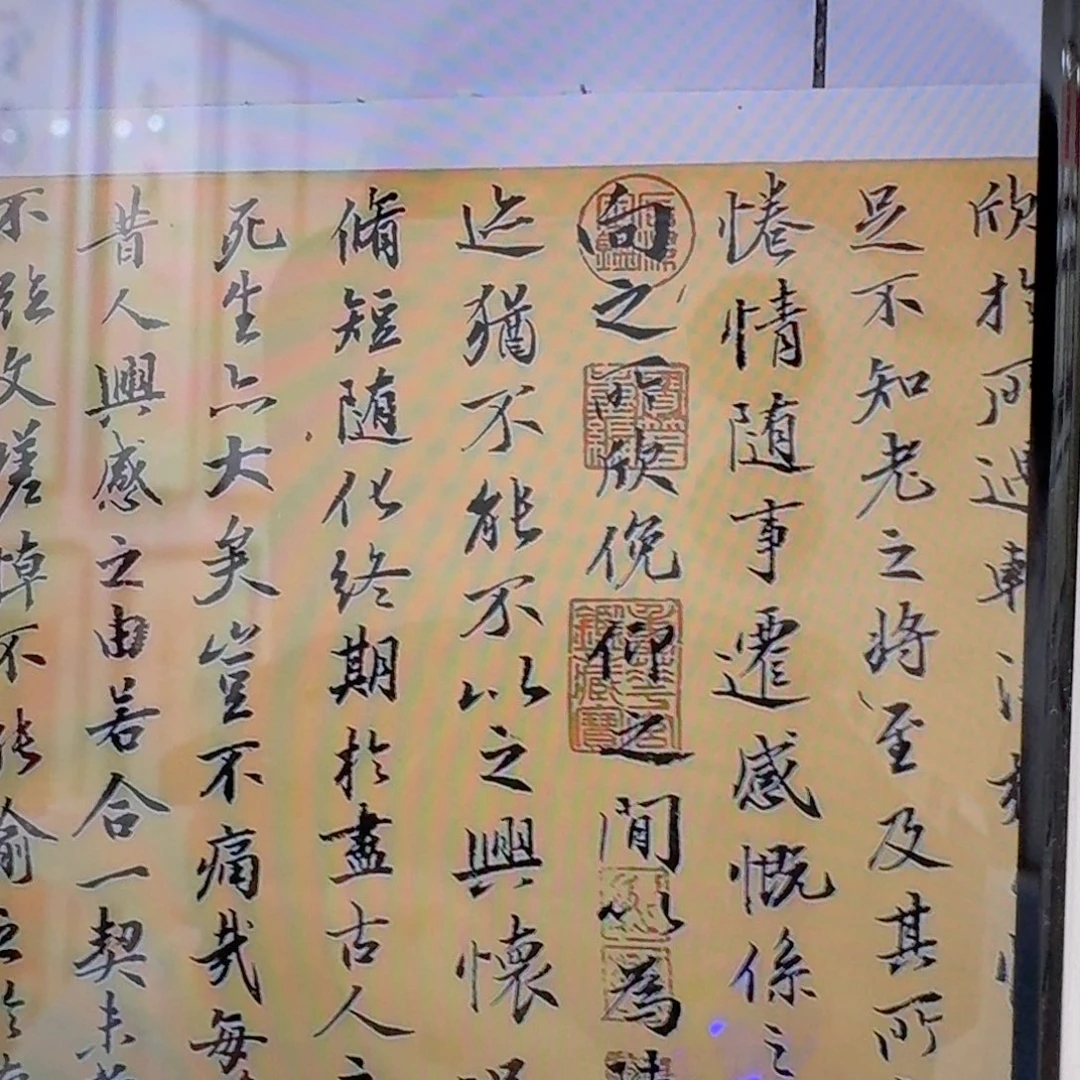 欣於所遇暫得於
足不知老之將至及其所
惓情随事遷感慨係之
向之所欣俛仰之閒以為陳
迹猶不能不以之興懷
脩短随化終期於盡古人云
死生亦大矣豈不痛哉每
昔人興感之由若合一契未
不臨文嗟悼不能喻之於